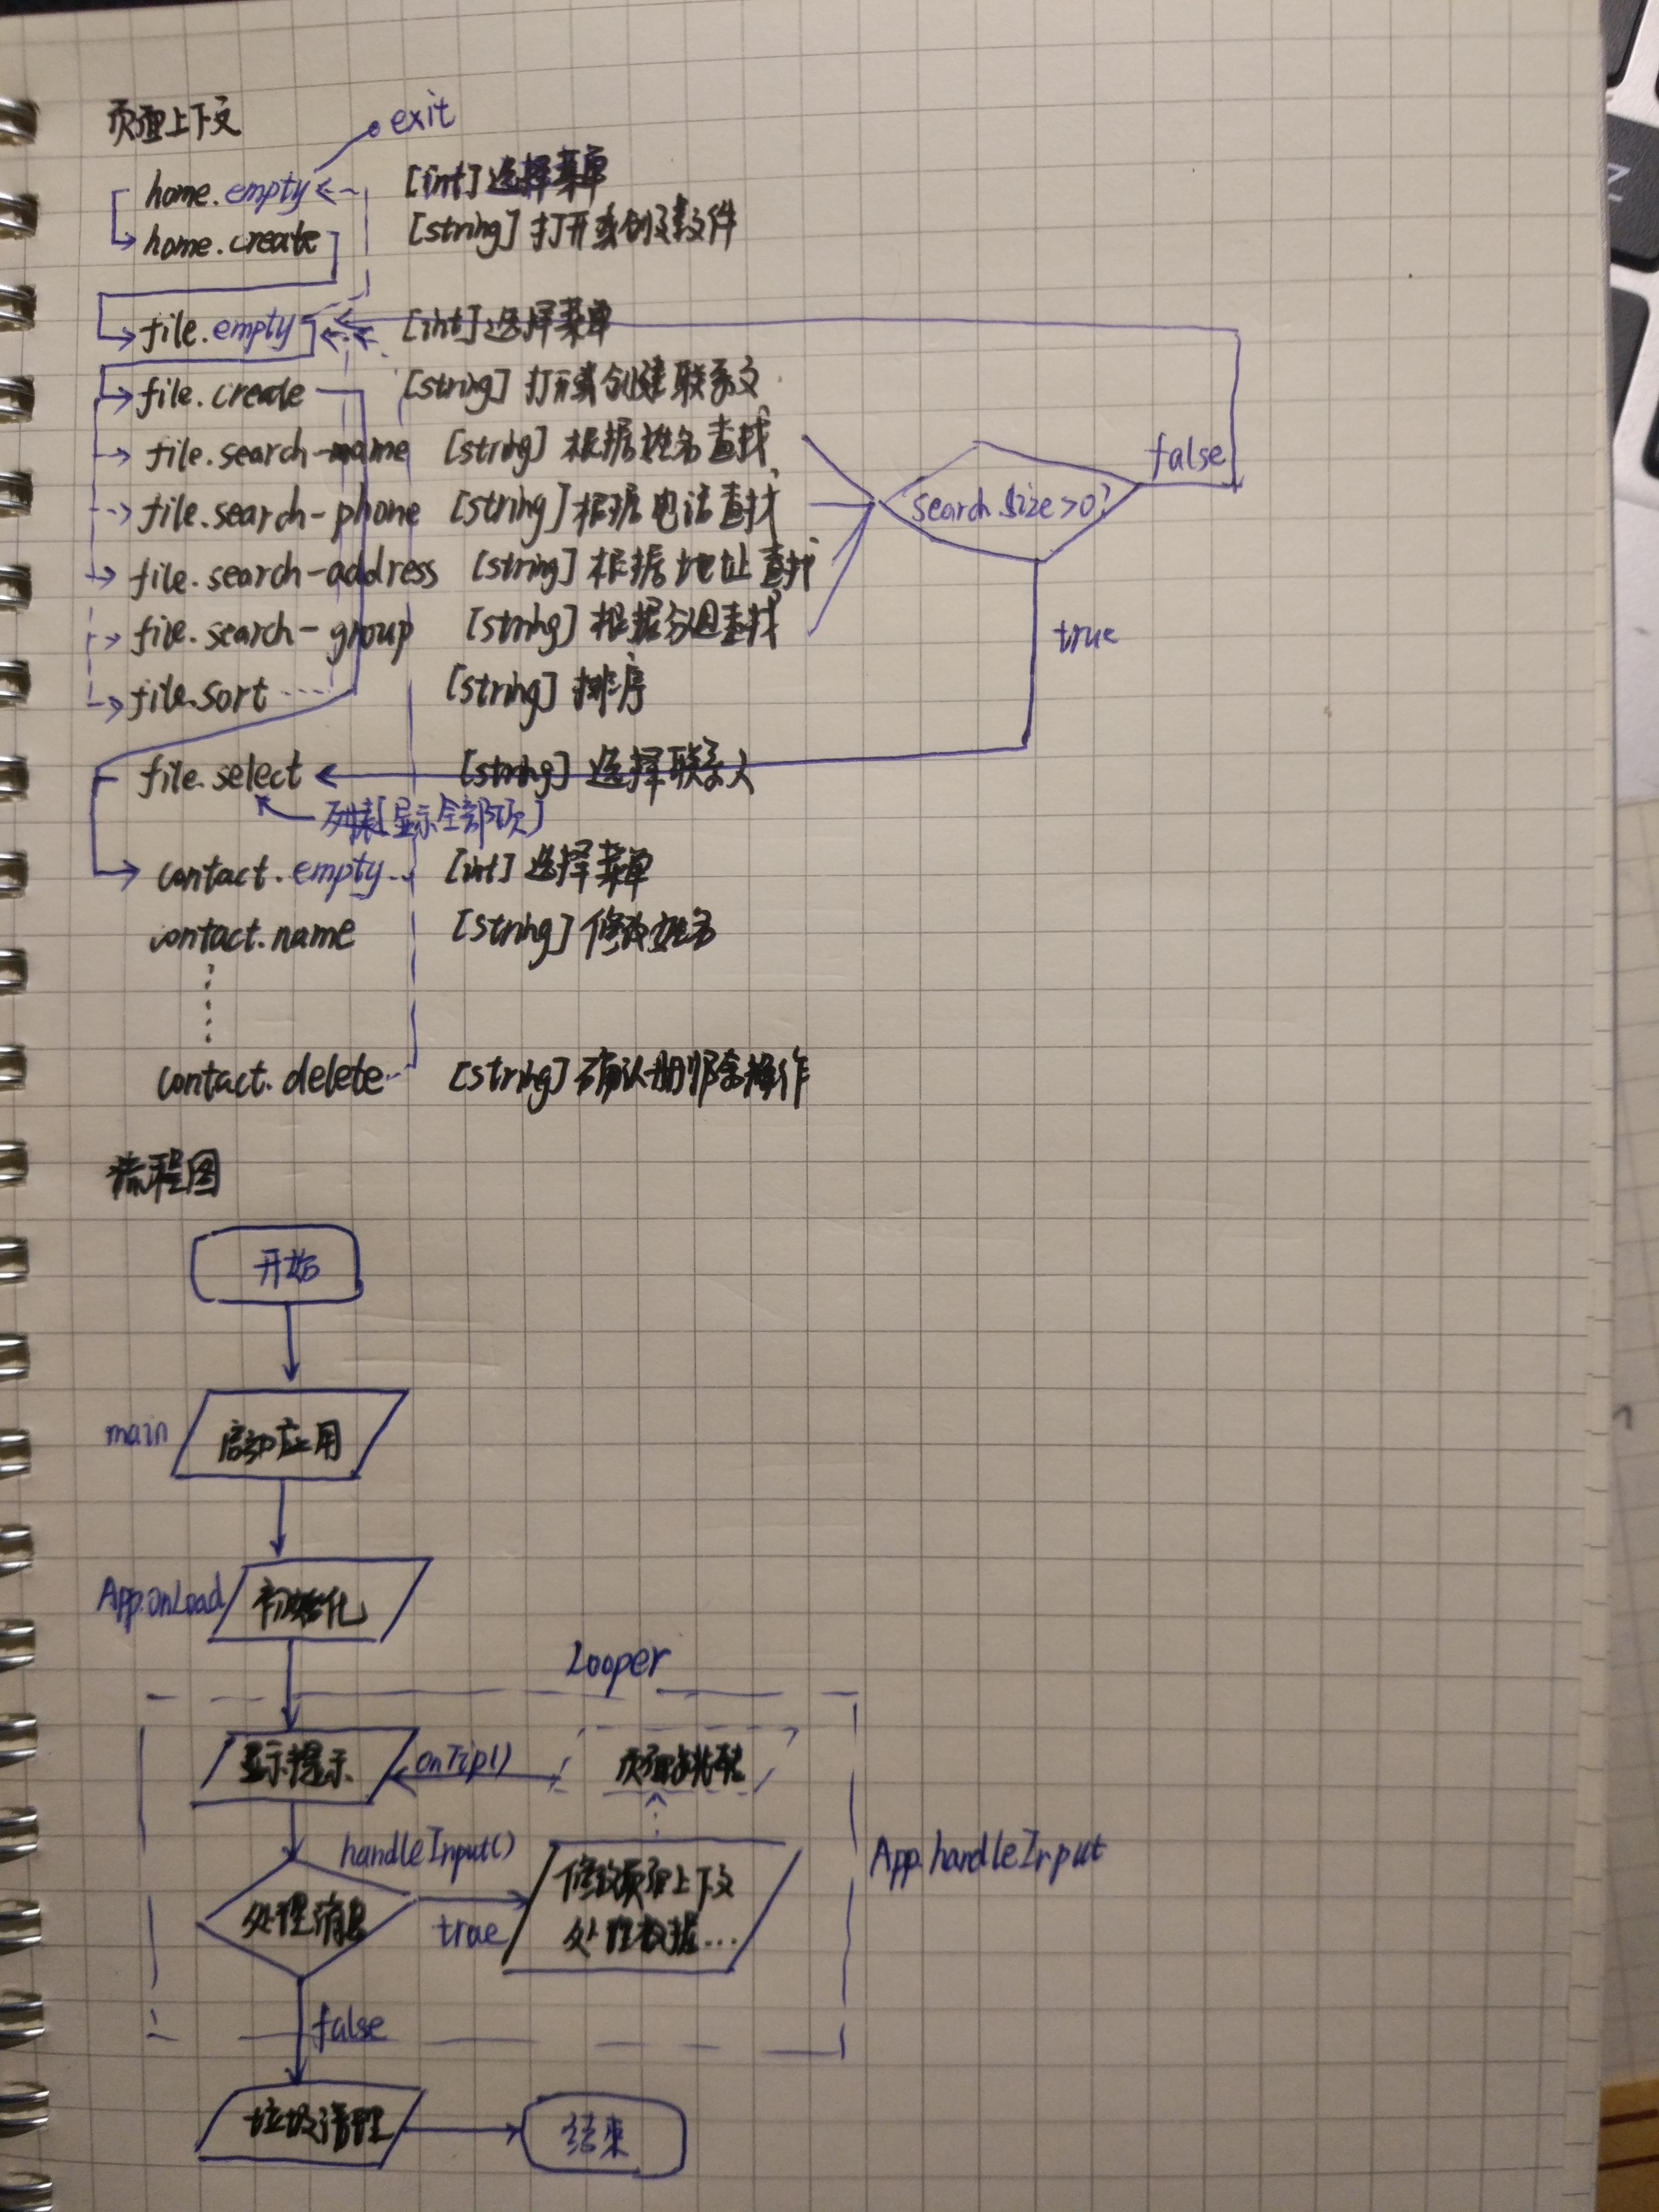 页面上下文
exit
home.empty [int] 选择菜单
home.create [string] 打开或创建文件
file.empty [int] 选择菜单
file.create [string] 打开或创建联系文
file.search-name [string] 根据姓名查找
false
file.search-phone [string] 根据电话查找
search.size>0?
file.search-address [string] 根据地址查找
file.search-group [string] 根据分组查找
true
file.sort [string] 排序
file.select [string] 选择联系人
列表[显示全部项]
contact.empty [int] 选择菜单
contact.name [string] 修改姓名
contact.delete [string] 确认删除操作
流程图
开始
main 启动应用
App.onLoad 初始化
Looper
显示提示 onTip() 页面跳转
handleInput() App.handleInput
处理消息 true 修改页面上下文
处理数据...
false
垃圾清理 结束